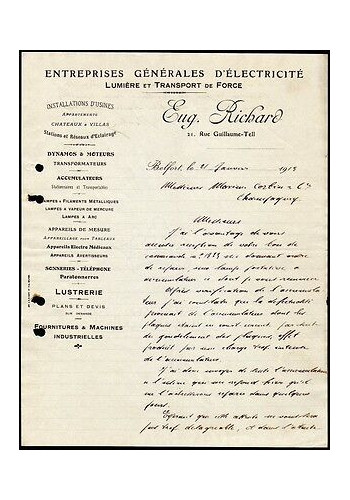 ENTREPRISES GÉNÉRALES D'ÉLECTRICITÉ
LUMIÈRE ET TRANSPORT DE FORCE
INSTALLATIONS D'USINES
APPARTEMENTS
CHATEAUX & VILLAS
Stations et Réseaux d'Eclairage
DYNAMOS & MOTEURS
TRANSFORMATEURS
ACCUMULATEURS
Stationnaires et Transportables
LAMPES A FILAMENTS MÉTALLIQUES
LAMPES A VAPEUR DE MERCURE
LAMPES A ARC
APPAREILS DE MESURE
APPAREILLAGE POUR TABLEAUX
Appareils Electro Médicaux
APPAREILS AVERTISSEURS
SONNERIES - TÉLÉPHONE
Paratonnerres
LUSTRERIE
PLANS ET DEVIS
SUR DEMANDE
FOURNITURES & MACHINES
INDUSTRIELLES
Eug. Richard
21, Rue Guillaume-Tell
Belfort, le 21 Janvier 1913
Messieurs
Champagney
Messieurs
J'ai l'avantage de vous
accuser réception de votre bon de
commande n° me donnant ordre
de réparer une lampe portative à
accumulateur
Après vérification de l'accumula
teur j'ai constaté que la défectuosité
provenait de l'accumulateur dont les
plaques étaient en court circuit par suite
de gondolement des plaques, effet
produit par une charge trop intense
de l'accumulateur.
J'ai donc envoyé de suite l'accumulateur
à l'usine que me répond bien qu'il
sera réparé dans quelques
jours.
Espérant que cette
pas trop désagréable, et dans l'attente